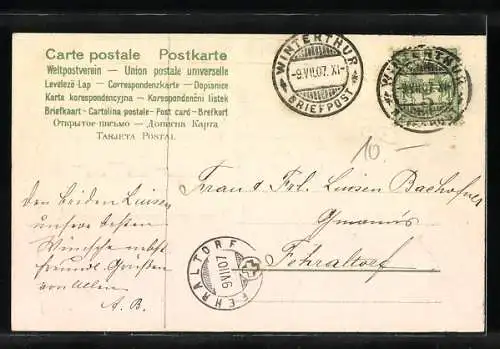 Carte postale Postkarte
Weltpostverein — Union postale universelle
Levelező-Lap — Correspondenzkarte — Dopisnice
Karta korespondencyjna — Korespondenční lístek
Briefkaart — Cartolina postale — Post card — Brefkort
Открытое письмо — Дописна Карта
TARJETA POSTAL
WINTERTHUR
-9.VII.07.XI-
BRIEFPOST
10.—
Frau & Frl. Luisen Bachofner
Fehraltorf
Den beiden Luisen
unsere besten
Wünsche nebst
freundl. Grüßen
von Allen
A. B.
FEHRALTORF
9 VII 07